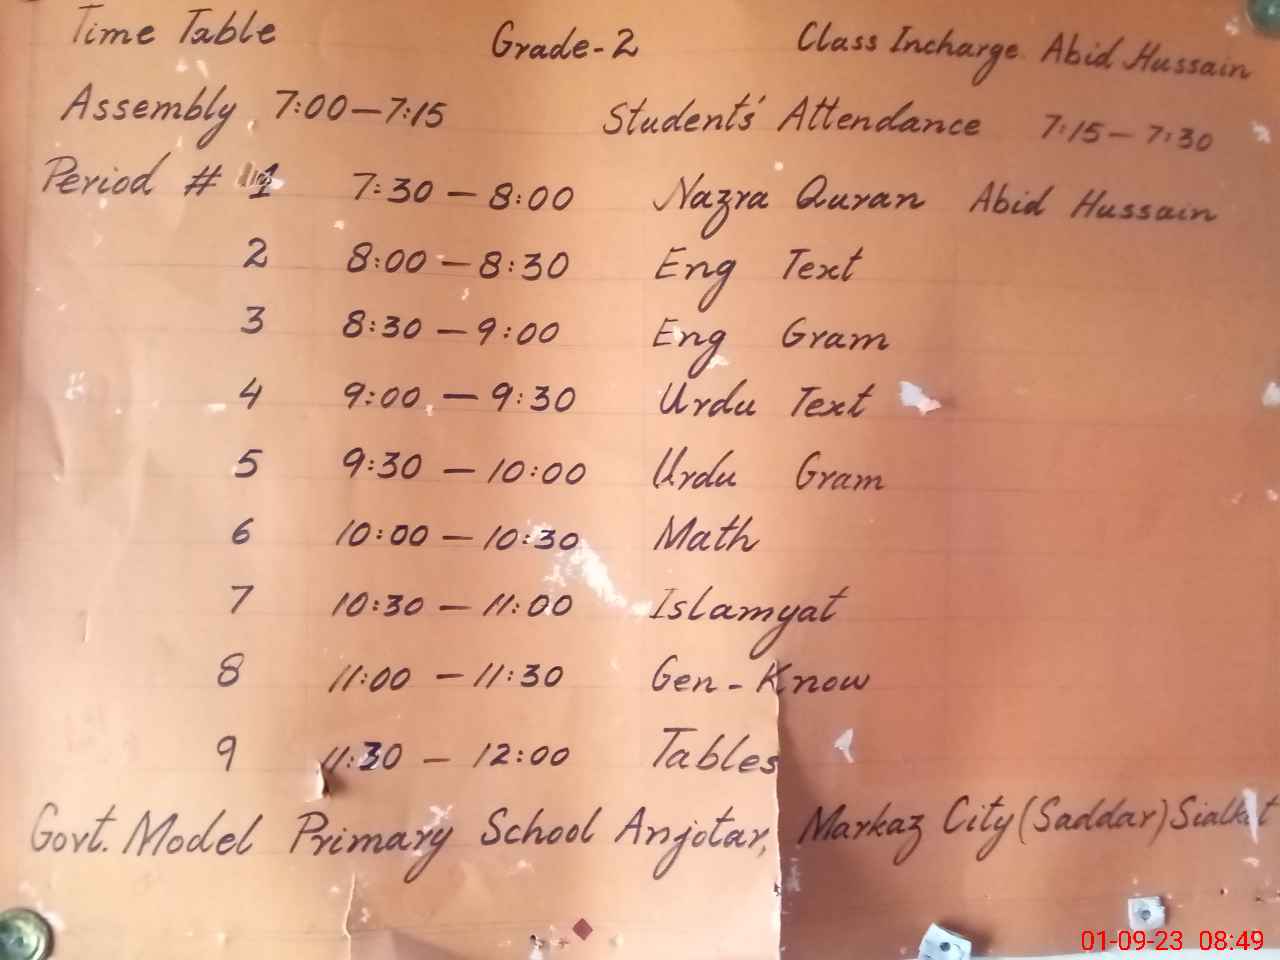 Time Table Grade-2 Class Incharge Abid Hussain
Assembly 7:00—7:15 Students' Attendance 7:15—7:30
Period # 1 7:30—8:00 Nazra Quran Abid Hussain
2 8:00—8:30 Eng Text
3 8:30—9:00 Eng Gram
4 9:00—9:30 Urdu Text
5 9:30—10:00 Urdu Gram
6 10:00—10:30 Math
7 10:30—11:00 Islamyat
8 11:00—11:30 Gen-Know
9 11:30—12:00 Tables
Govt. Model Primary School Anjotar, Markaz City (Saddar) Sialkot
01-09-23 08:49